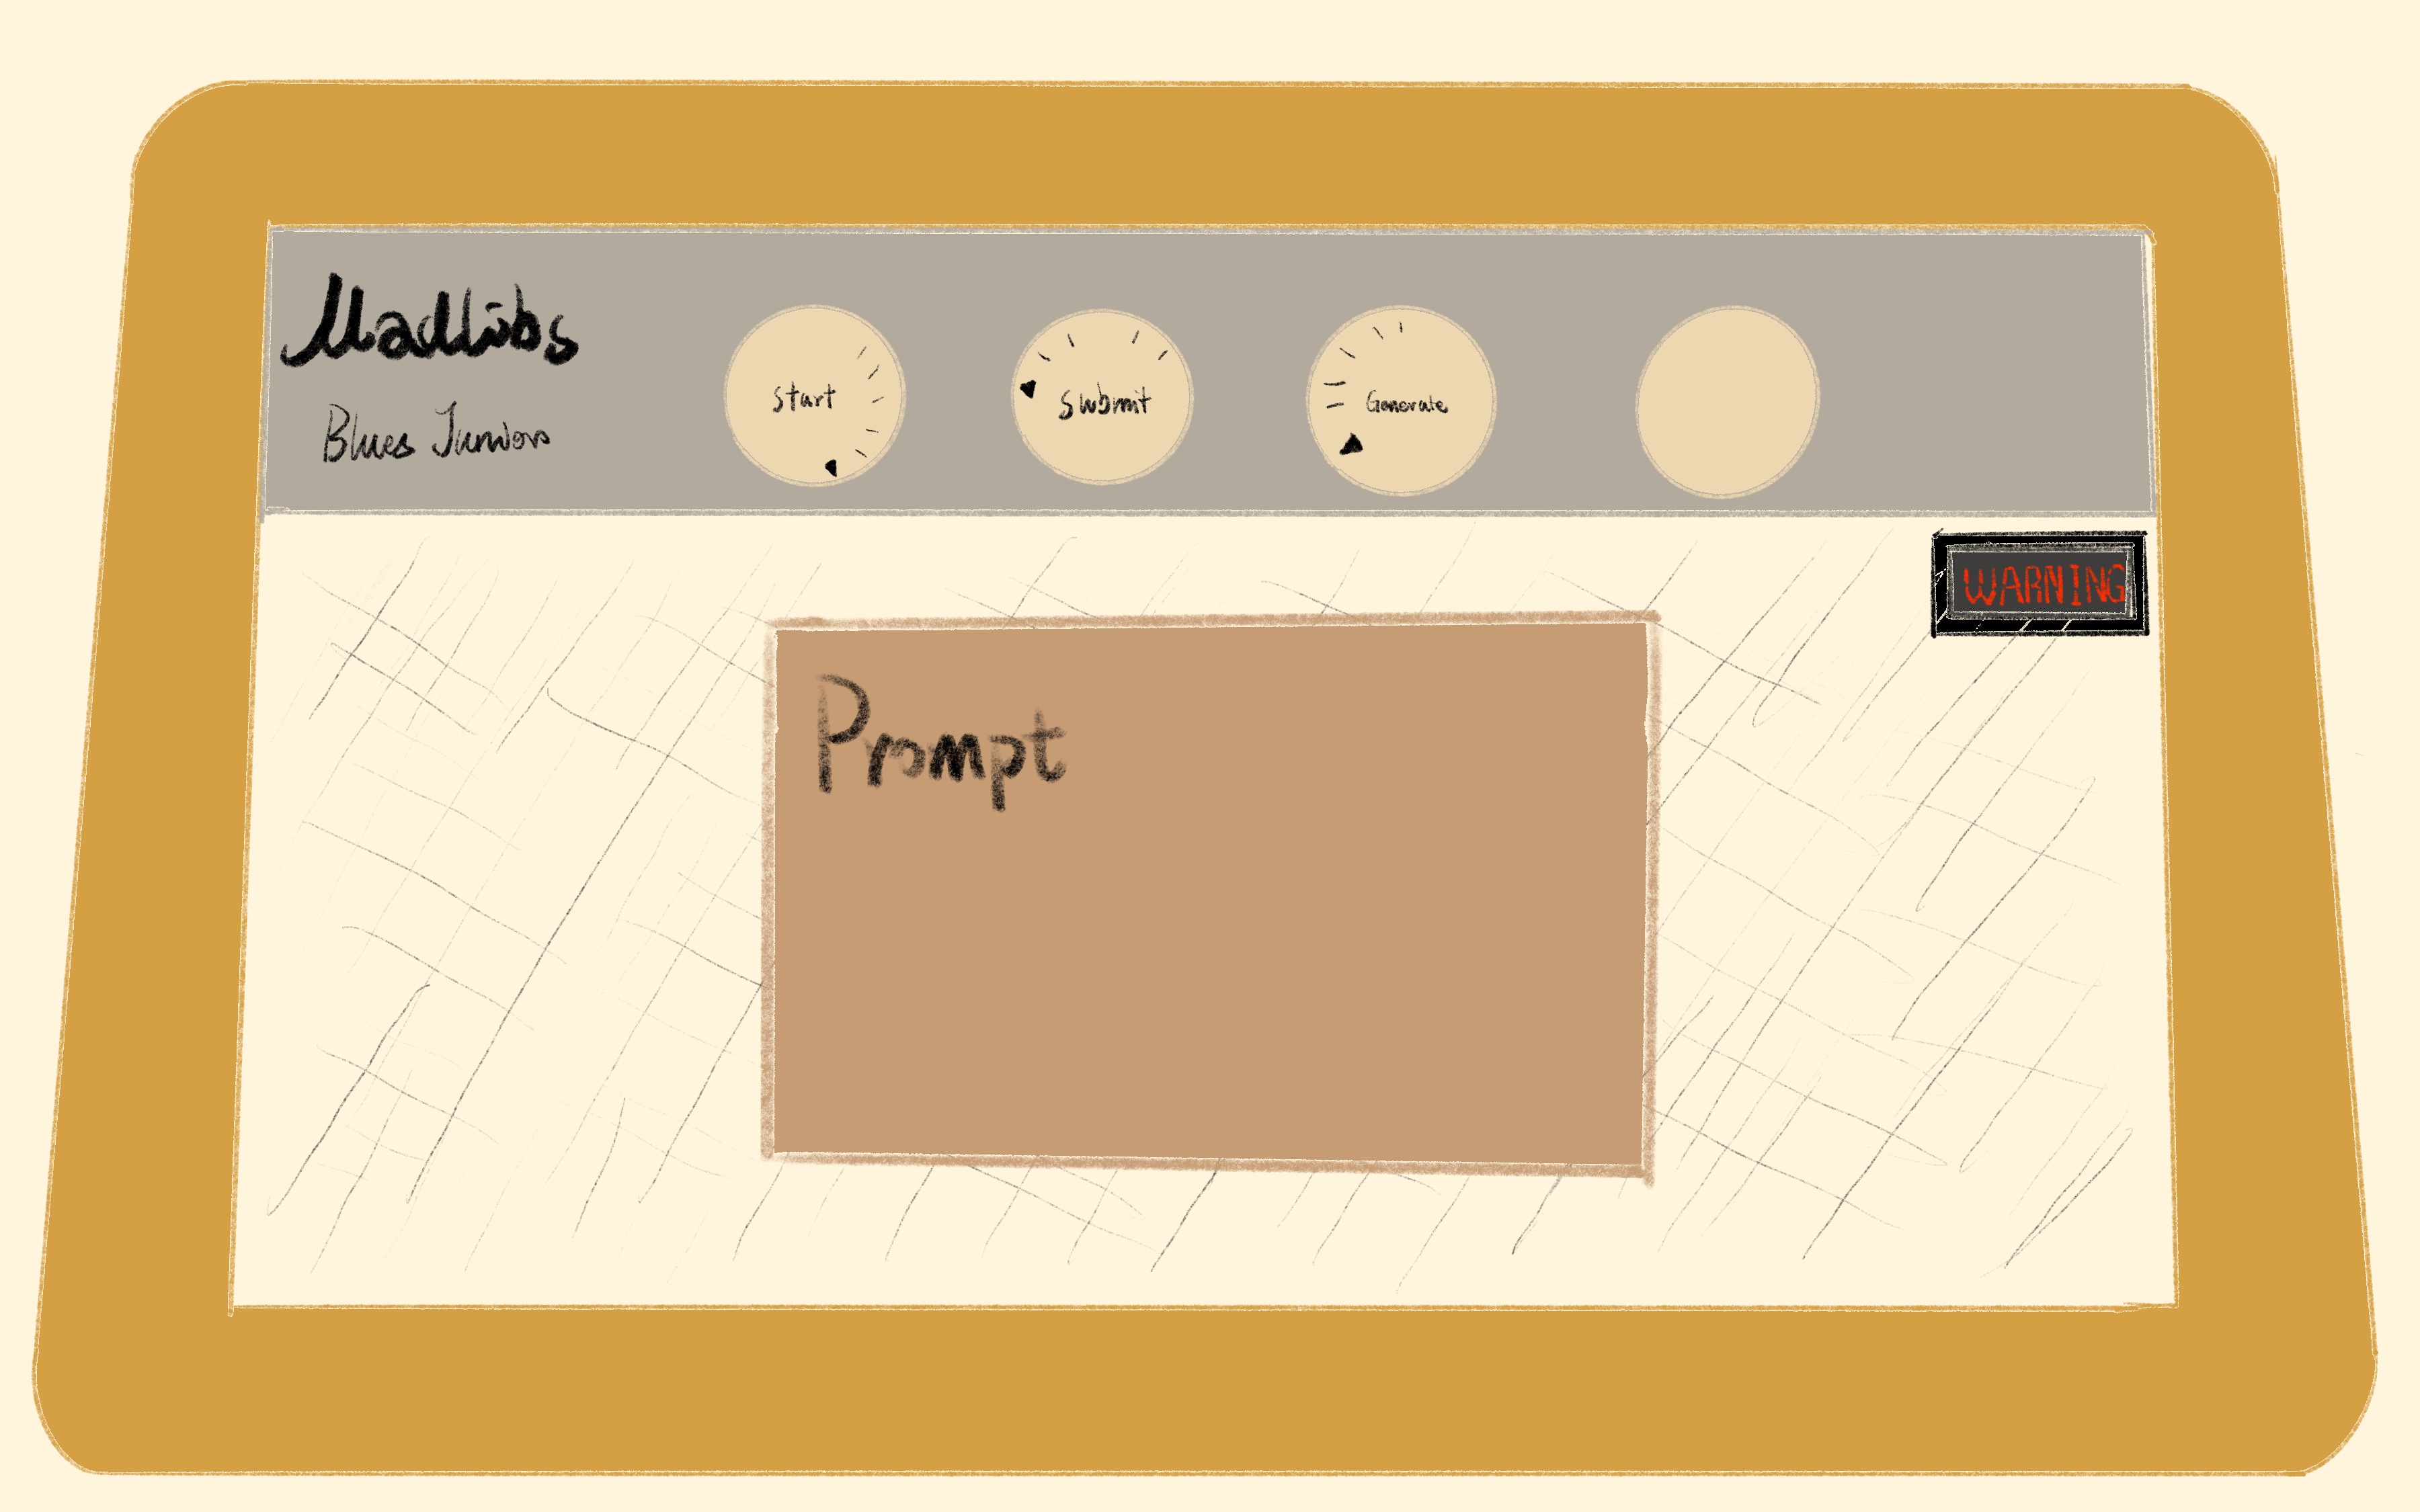 Madlibs
Blues Juniors
Start
Submit
Generate
WARNING
Prompt